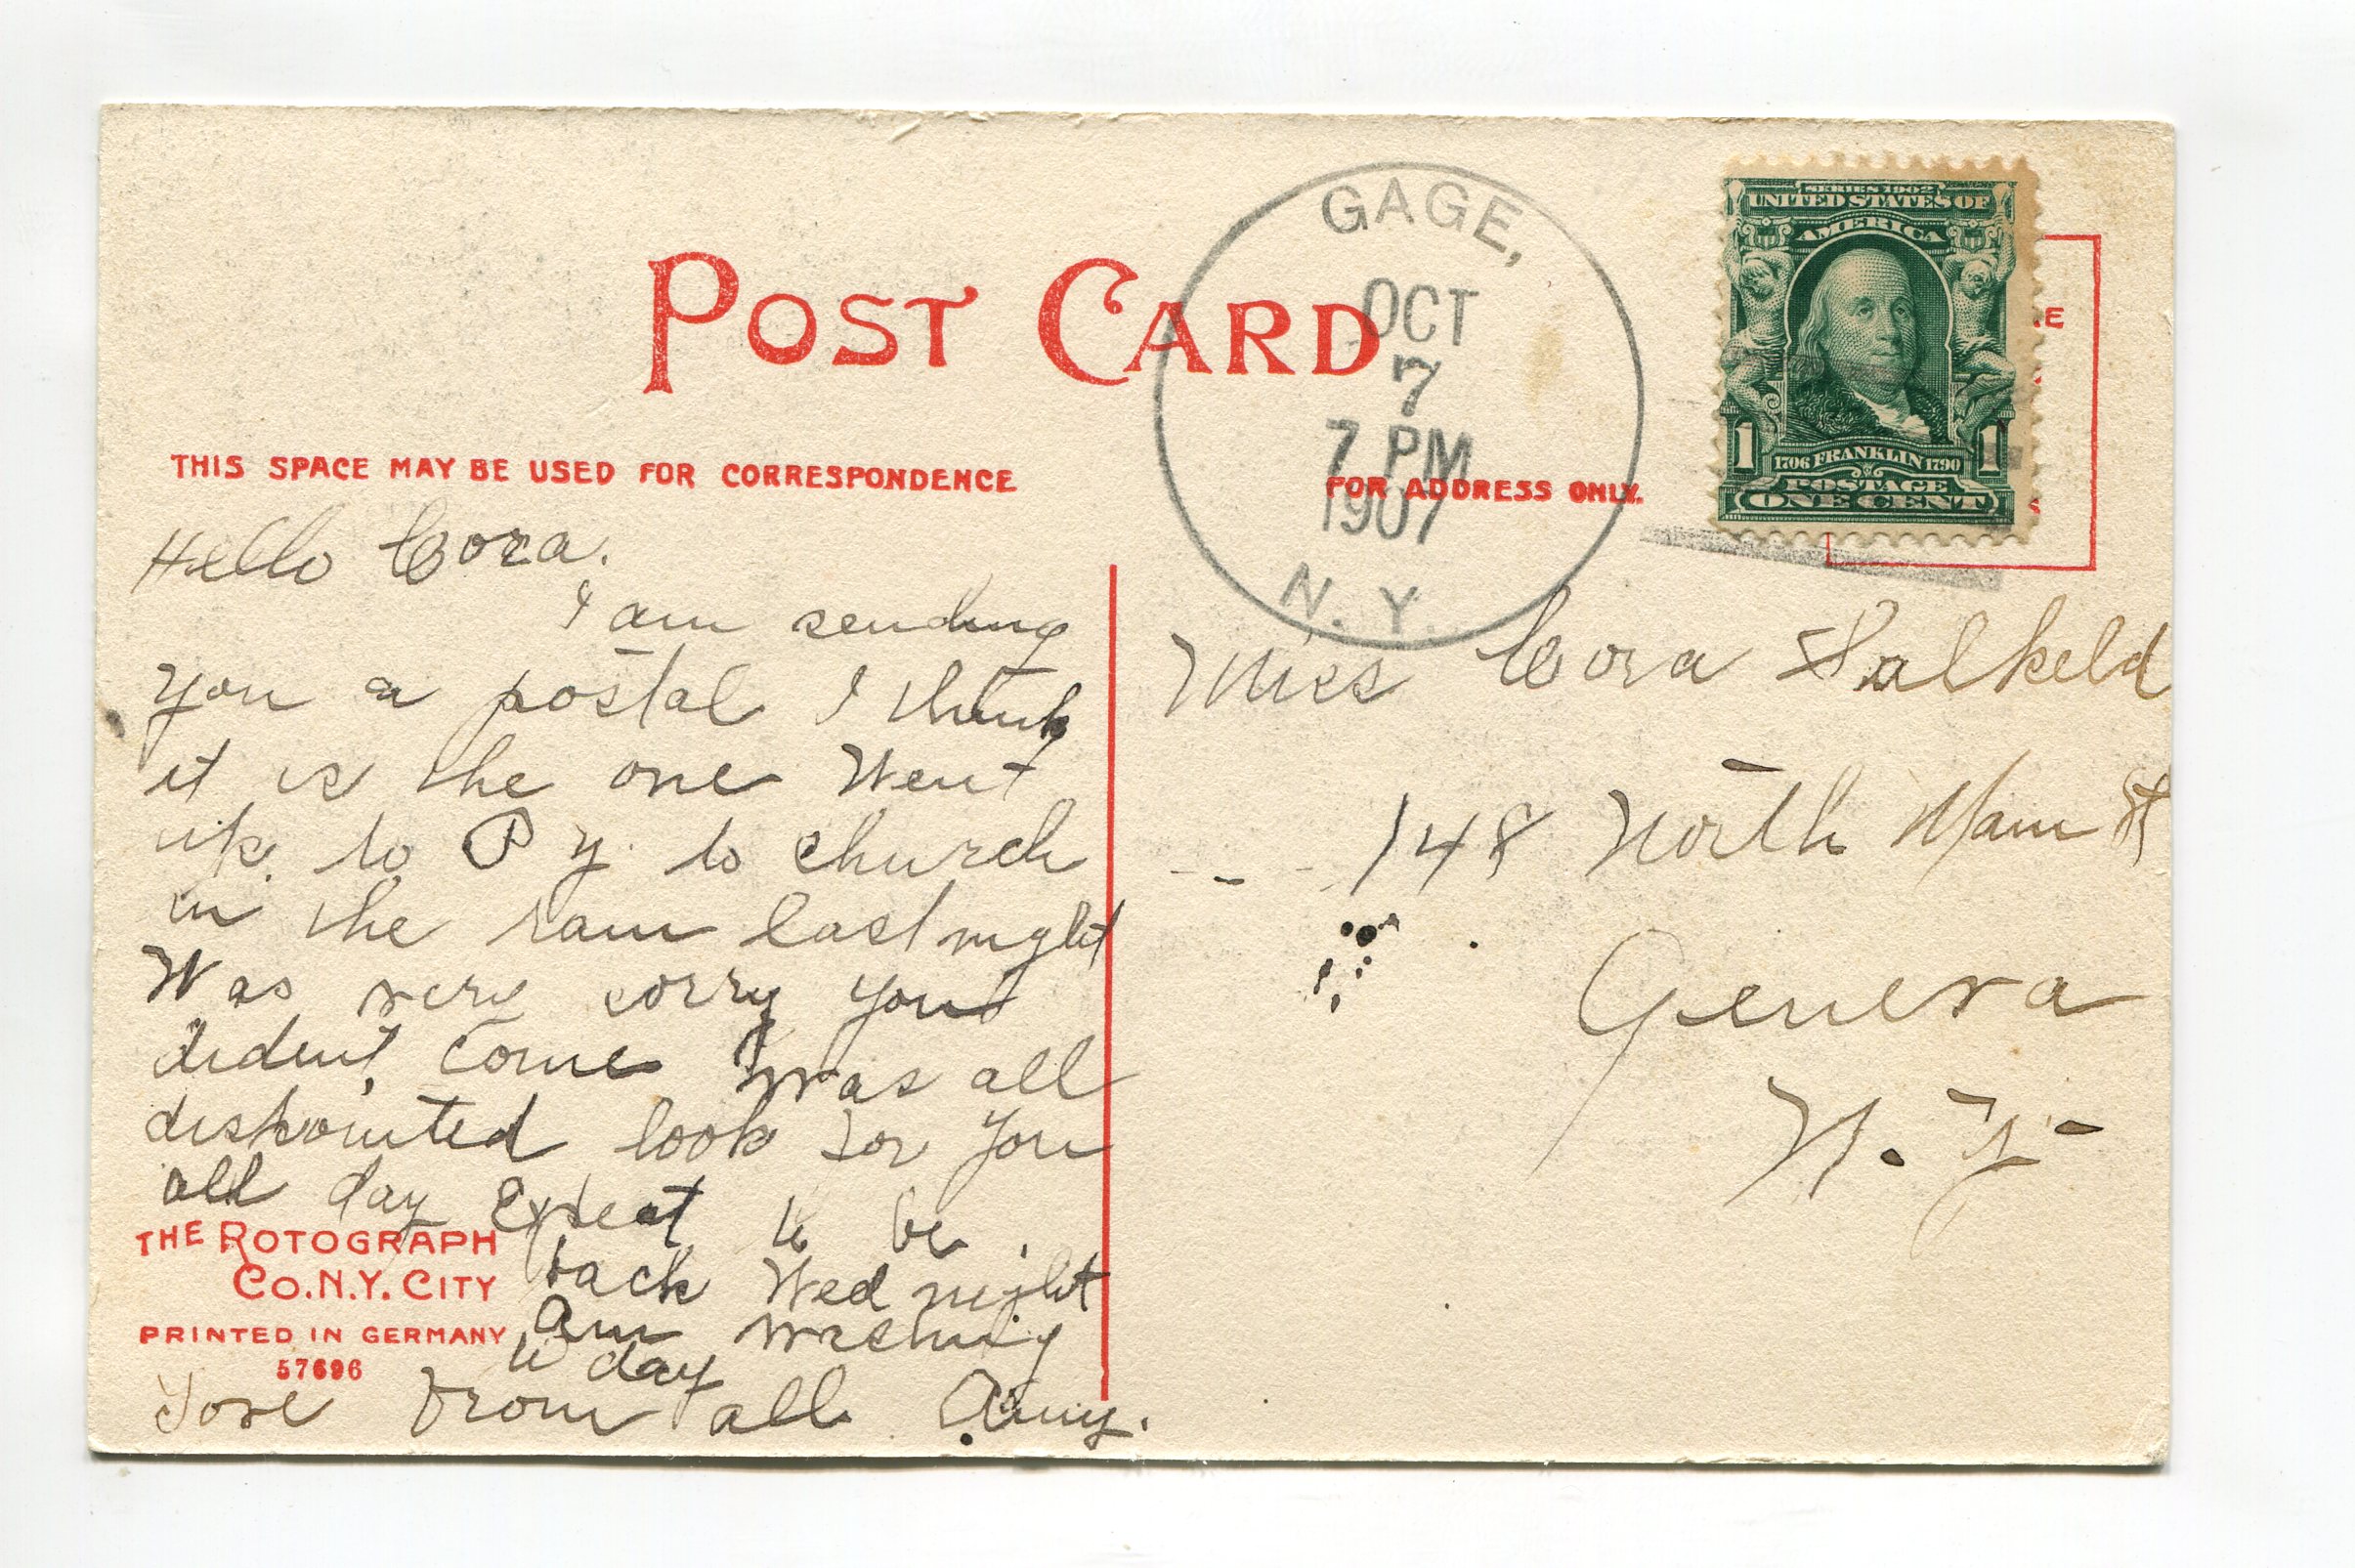 POST CARD
GAGE,
OCT
7
7 PM
1907
N. Y.
SERIES 1902
UNITED STATES OF
AMERICA
1 1
1706 FRANKLIN 1790
POSTAGE
ONE CENT
THIS SPACE MAY BE USED FOR CORRESPONDENCE
FOR ADDRESS ONLY.
Hello Cora.
I am sending
you a postal I think
it is the one Went
up. to P Y. to church
in the rain last night
Was very sorry you
dident come I was all
dispointed look for you
all day Expeat to be
back Wed night
Am
to day
Love from all Amy.
THE ROTOGRAPH
CO. N.Y. CITY
PRINTED IN GERMANY
57696
Miss Cora Salkeld
148 North Main St
Geneva
N. Y-